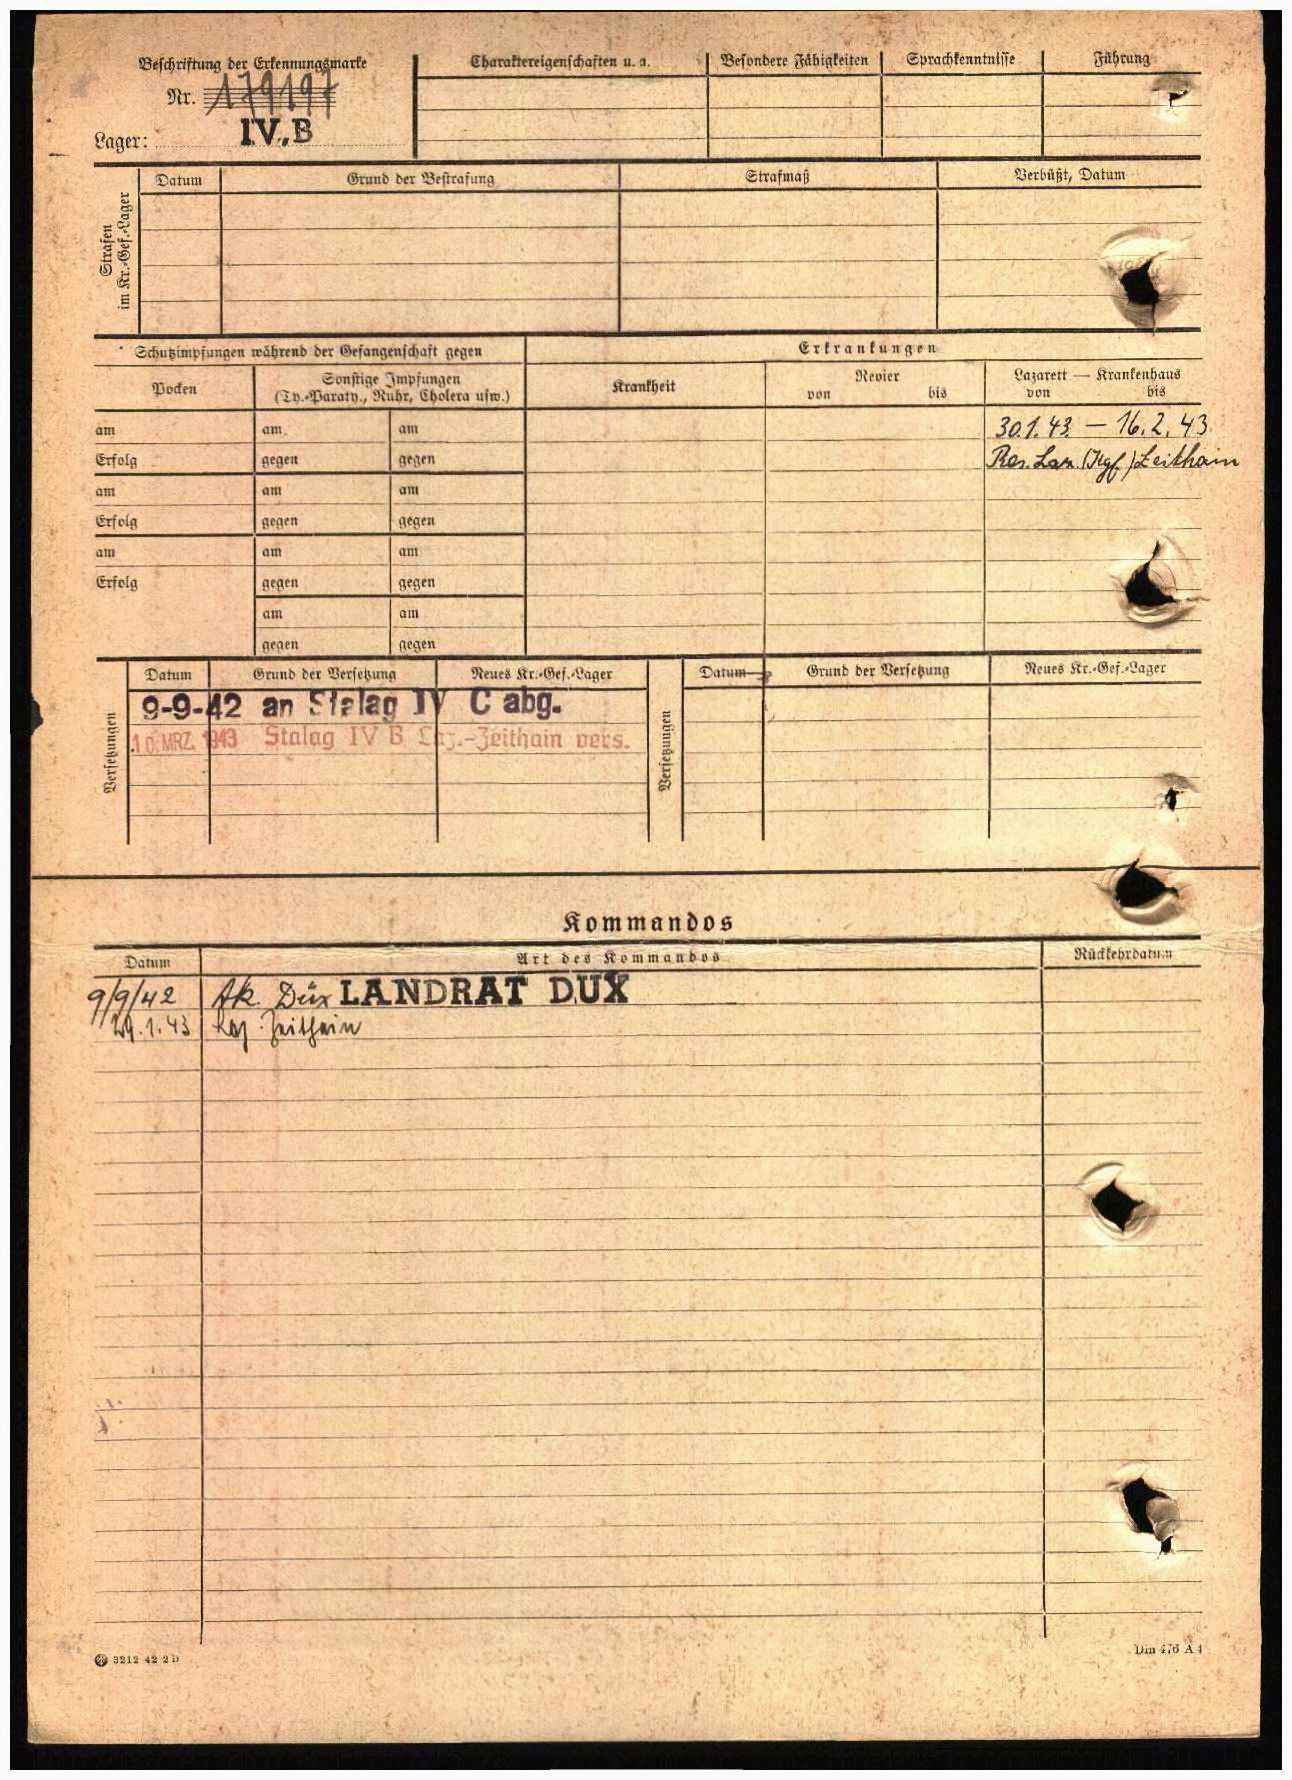 Beschriftung der Erkennungsmarke
Nr. 179197
Lager: IV.B
Charaktereigenschaften u. a.
Besondere Fähigkeiten
Sprachkenntnisse
Führung
Strafen
im Kr.-Gef.-Lager
Datum
Grund der Bestrafung
Strafmaß
Verbüßt, Datum
Schutzimpfungen während der Gefangenschaft gegen
Erkrankungen
Pocken
Sonstige Impfungen
(Ty.-Paraty., Ruhr, Cholera usw.)
Krankheit
Revier
von bis
Lazarett — Krankenhaus
von bis
am am am
30.1.43. — 16.2.43.
Erfolg gegen gegen
Res. Laz. (Kgf.) Zeithain
am am am
Erfolg gegen gegen
am am am
Erfolg gegen gegen
am am
gegen gegen
Versetzungen
Datum
Grund der Versetzung
Neues Kr.-Gef.-Lager
9-9-42 an Stalag IV C abg.
10. MRZ. 1943 Stalag IV B Laz.-Zeithain vers.
Versetzungen
Datum
Grund der Versetzung
Neues Kr.-Gef.-Lager
Kommandos
Datum
Art des Kommandos
Rückkehrdatum
9/9/42 Ak. Dux LANDRAT DUX
29.1.43 Laz. Zeithain
3212 42 2 D
Din 476 A 4